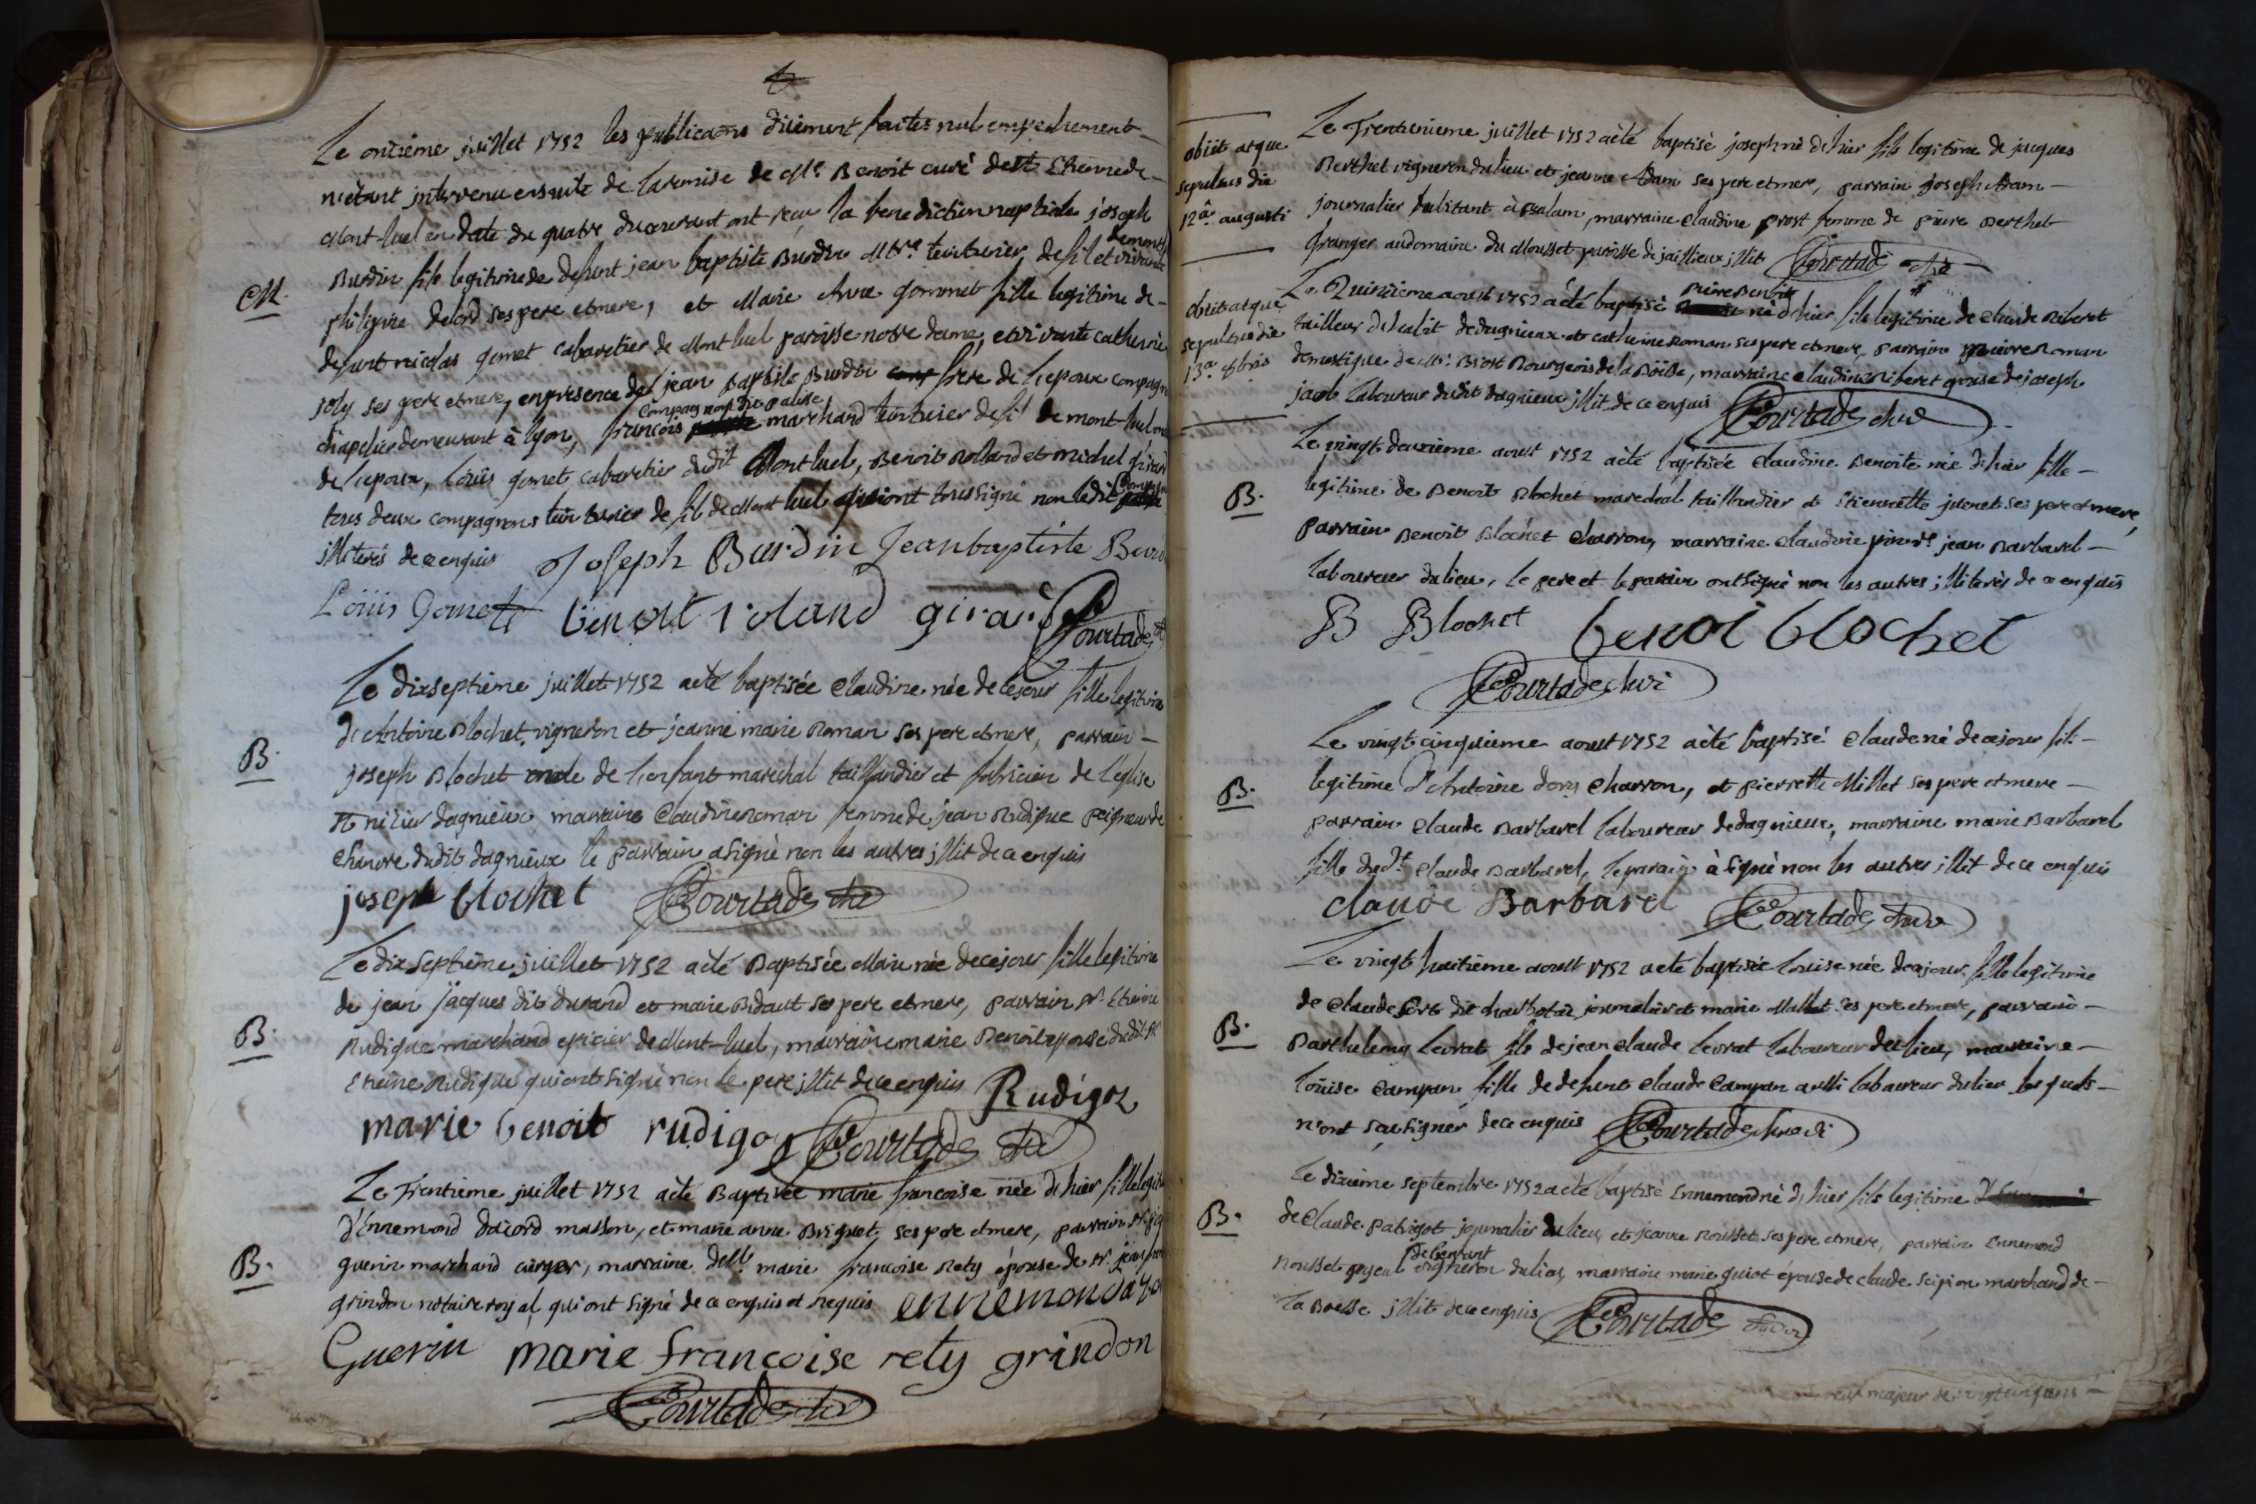 M.
Le onzième juillet 1752 les publications düement faites nul empechement
n'etant intervenu ensuite de la remise de Mr. Benoit curé de St Etienne de
Mont-luel en date du quatre du courant ont reçu la benediction nuptiale joseph
Burdin fils legitime de defunt jean baptiste Burdin Mtre teinturier de fil et vivante
philipine delord ses pere et mere, et Marie Anne Gommet fille legitime de
defunt nicolas gomet cabaretier de Mont luel paroisse notre dame, et vivante catherine
joly ses pere et mere, en presence de jean baptiste Burdin frere de l'epoux compagnon
chapelier demeurant à lyon, françois marchand teinturier de fil de mont-luel
de l'epoux, loüis gomet cabaretier dudit Montluel, Benoit Rolland et michel girard
tous deux compagnons teinturier de fil de Mont luel qui ont tous signé non ledit
illiterés de ce enquis Joseph Burdin Jean baptiste Burdin
Loüis Gomet benoit roland girard Courtade
B.
Le dixseptième juillet 1752 a eté baptisée Claudine née de ce jour fille legitime
d'Antoine Blochet vigneron et jeanne marie Roman ses pere et mere, parrain
joseph Blochet oncle de l'enfant marechal taillandier et fabricien de l'eglise
St nizier dagnieux marraine Claudine Roman femme de jean Rudigue peigneur de
chanvre dudit dagnieux le parrain a signé non les autres illit de ce enquis
joseph blochet Courtade curé
B.
Le dixseptième juillet 1752 a eté Baptisée Marie née de ce jour fille legitime
de jean jacques dit durand et marie Bidaut ses pere et mere, parrain Sr. Etienne
Rudigue marchand epicier de Mont-luel, marraine marie Benoit epouse dudit Sr
Etienne Rudigue qui ont signé non le pere illit de ce enquis Rudigoz
marie benoit rudigoz Courtade curé
B.
Le Trentieme juillet 1752 a eté Baptisée marie françoise née d'hier fille legitime
d'Ennemond dacord masson, et marie anne Briquet ses pere et mere, parrain
guerin marchand cirger, marraine delle marie francoise Rety épouse de Sr. jean
grindon notaire royal, qui ont signé de ce enquis et requis ennemon
Guerin marie francoise rety grindon
Courtade curé
obiit atque
sepultus die
12â augusti
Le Trentunieme juillet 1752 a eté baptisé joseph né d'hier fils legitime de jacques
Berthet vigneron du lieu et jeanne Adam ses pere et mere, parrain joseph Adam
journalier habitant à Balam, marraine Claudine prost femme de pierre Berthet
Granger au domaine du Mousset paroisse de jaillieux illit Courtade curé
obiit atque
sepultus die
13a 8bris
Le Quinzieme aoust 1752 a eté baptisé pierre Benoit né d'hier fils legitime de Claude Riberet
tailleur d'habit de dagnieux et catherine Roman ses pere et mere, parrain pierre Roman
domestique de Mr. Brost Bourgeois de la Böisse, marraine Claudine Riberet epouse de joseph
jacob laboureur dudit dagnieux illit de ce enquis Courtade curé
B.
Le vingt deuxieme aoust 1752 a eté baptisée Claudine Benoite née d'hier fille
legitime de Benoit Blochet marechal taillandier et Etiennette juenet ses pere et mere,
parrain Benoit Blochet Charron, marraine Claudine jean Barbarel
laboureur du lieu, le pere et le parrain ont signé non les autres illiterés de ce enquis
B Blochet benoi blochet
Courtade curé
B.
Le vingt cinquieme aoust 1752 a eté baptisé Claude né de ce jour fils
legitime d'Antoine dory Charron, et pierrette Millet ses pere et mere
parrain Claude Barbarel laboureur de dagnieux, marraine marie Barbarel
fille dudt. Claude Barbarel, le parain à signé non les autres illit de ce enquis
claude Barbarel Courtade curé
B.
Le vingt huitième aoust 1752 a eté baptisée Loüise née de ce jour fille legitime
de Claude journalier et marie Mallet ses pere et mere, parrain
Barthelemy Levrat fils de jean Claude Levrat laboureur du lieu, marraine
Loüise Campan fille de defunt Claude Campan aussi laboureur du lieu lesquels
n'ont sçu signer de ce enquis Courtade curé
B.
Le dixieme septembre 1752 a eté baptisé Ennemond né d'hier fils legitime
de Claude patrigot journalier du lieu, et jeanne Rousset ses pere et mere, parrain Ennemond
Rousset ayeul de l'enfant vigneron du lieu, marraine marie guiot épouse de claude scipion marchand de
la Boesse illit de ce enquis Courtade curé
majeur de vingt cinq ans